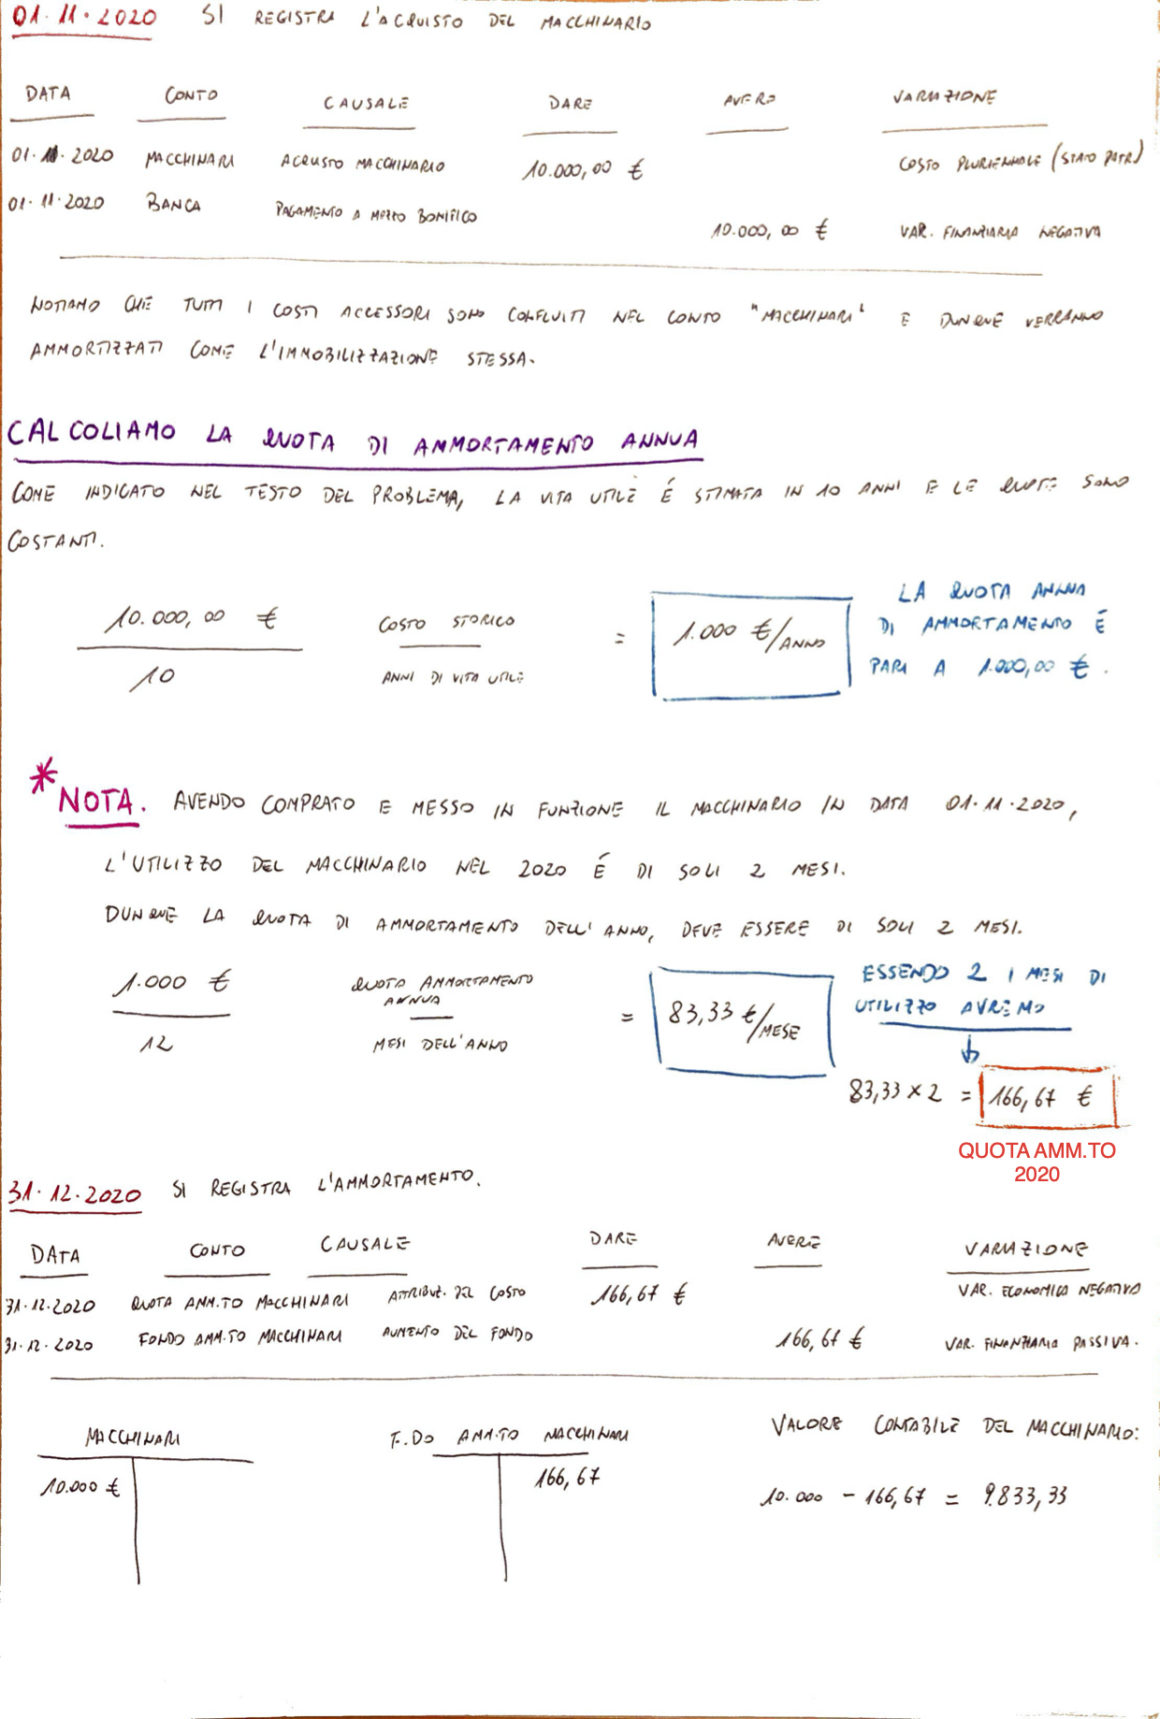 01.11.2020 SI REGISTRA L'ACQUISTO DEL MACCHINARIO
DATA CONTO CAUSALE DARE AVERE VARIAZIONE
01.11.2020 MACCHINARI ACQUISTO MACCHINARIO 10.000,00 € COSTO PLURIENNALE (STATO PATR)
01.11.2020 BANCA PAGAMENTO A MEZZO BONIFICO 10.000,00 € VAR. FINANZIARIA NEGATIVA
NOTIAMO CHE TUTTI I COSTI ACCESSORI SONO CONFLUITI NEL CONTO "MACCHINARI" E DUNQUE VERRANNO
AMMORTIZZATI COME L'IMMOBILIZZAZIONE STESSA.
CALCOLIAMO LA QUOTA DI AMMORTAMENTO ANNUA
COME INDICATO NEL TESTO DEL PROBLEMA, LA VITA UTILE É STIMATA IN 10 ANNI E LE QUOTE SONO
COSTANTI.
10.000,00 € COSTO STORICO = 1.000 €/ANNO
10 ANNI DI VITA UTILE
LA QUOTA ANNUA
DI AMMORTAMENTO É
PARI A 1.000,00 €.
* NOTA. AVENDO COMPRATO E MESSO IN FUNZIONE IL MACCHINARIO IN DATA 01.11.2020,
L'UTILIZZO DEL MACCHINARIO NEL 2020 É DI SOLI 2 MESI.
DUNQUE LA QUOTA DI AMMORTAMENTO DELL'ANNO, DEVE ESSERE DI SOLI 2 MESI.
1.000 € QUOTA AMMORTAMENTO
ANNUA = 83,33 €/MESE
12 MESI DELL'ANNO
ESSENDO 2 I MESI DI
UTILIZZO AVREMO
83,33 × 2 = 166,67 €
QUOTA AMM.TO
2020
31.12.2020 SI REGISTRA L'AMMORTAMENTO.
DATA CONTO CAUSALE DARE AVERE VARIAZIONE
31.12.2020 QUOTA AMM.TO MACCHINARI ATTRIBUZ. DEL COSTO 166,67 € VAR. ECONOMICA NEGATIVA
31.12.2020 FONDO AMM.TO MACCHINARI AUMENTO DEL FONDO 166,67 € VAR. FINANZIARIA PASSIVA.
MACCHINARI F.DO AMM.TO MACCHINARI VALORE CONTABILE DEL MACCHINARIO:
10.000 € 166,67 10.000 - 166,67 = 9.833,33